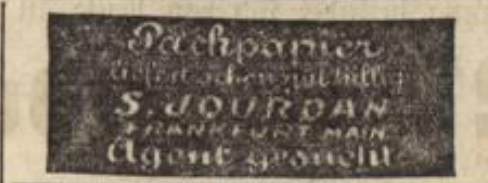 Packpapier
liefert schon zu billig
S. JOURDAN
FRANKFURT MAIN
Agent gesucht